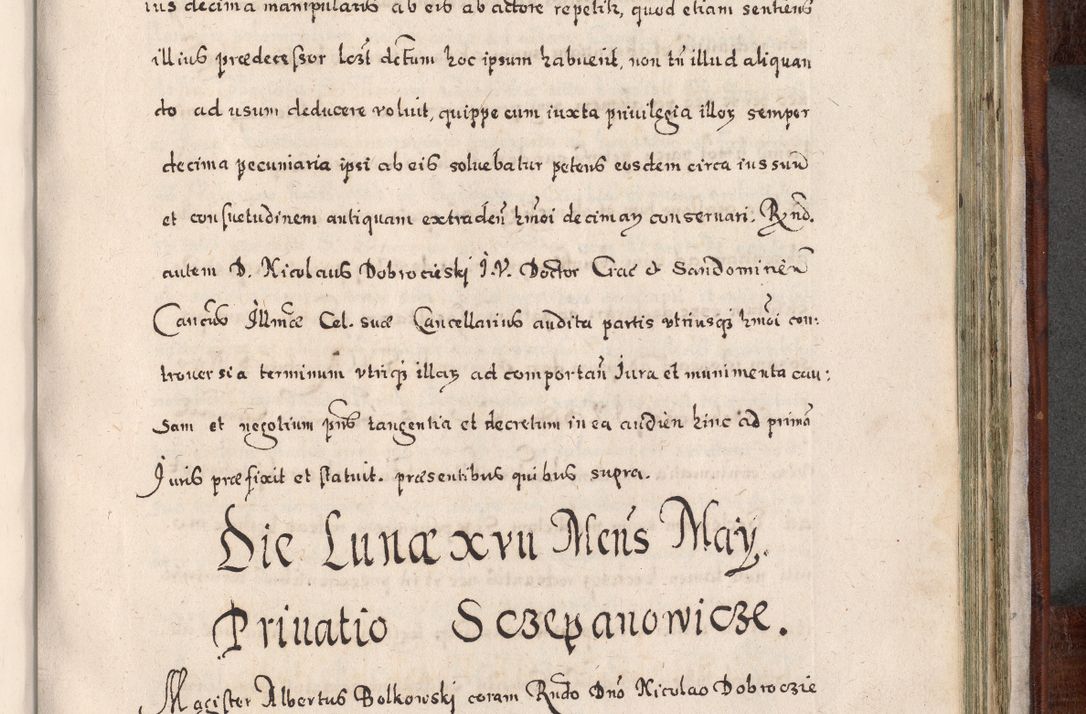 ius decima manipularis ab eis ab actore repetit, quod etiam sentiens
illius prædecessor lozt dctum hoc ipsum habuerit, non tñ illud aliquan
do ad usum deducere voluit, quippe cum iuxta privilegia illoꝝ semper
decima pecuniaria ipsi ab eis soluebatur petens eosdem circa ius suũ
et consuetudinem antiquam extradeñ hmoi decimaꝝ conseruari. Rnd.
autem D. Nicolaus Dobrocieski J.V. Doctor Crac et Sandomirieñ
Cancus Illmæ Cel. suæ Cancellarius audita partis vtriusqꝫ hmoi con:
trouersia terminum vtriqꝫ illaꝝ ad comportañ Jura et munimenta cau:
sam et negotium pñs tangentia et decretum in ea audien hinc ad primã
Juris præfixit et statuit. præsentibus quibus supra.
Die Lunæ xvii Mens May.
Priuatio Sczepanowicze.
Magister Albertus Bolkowski coram Rndo Dno Nicolao Dobroczie